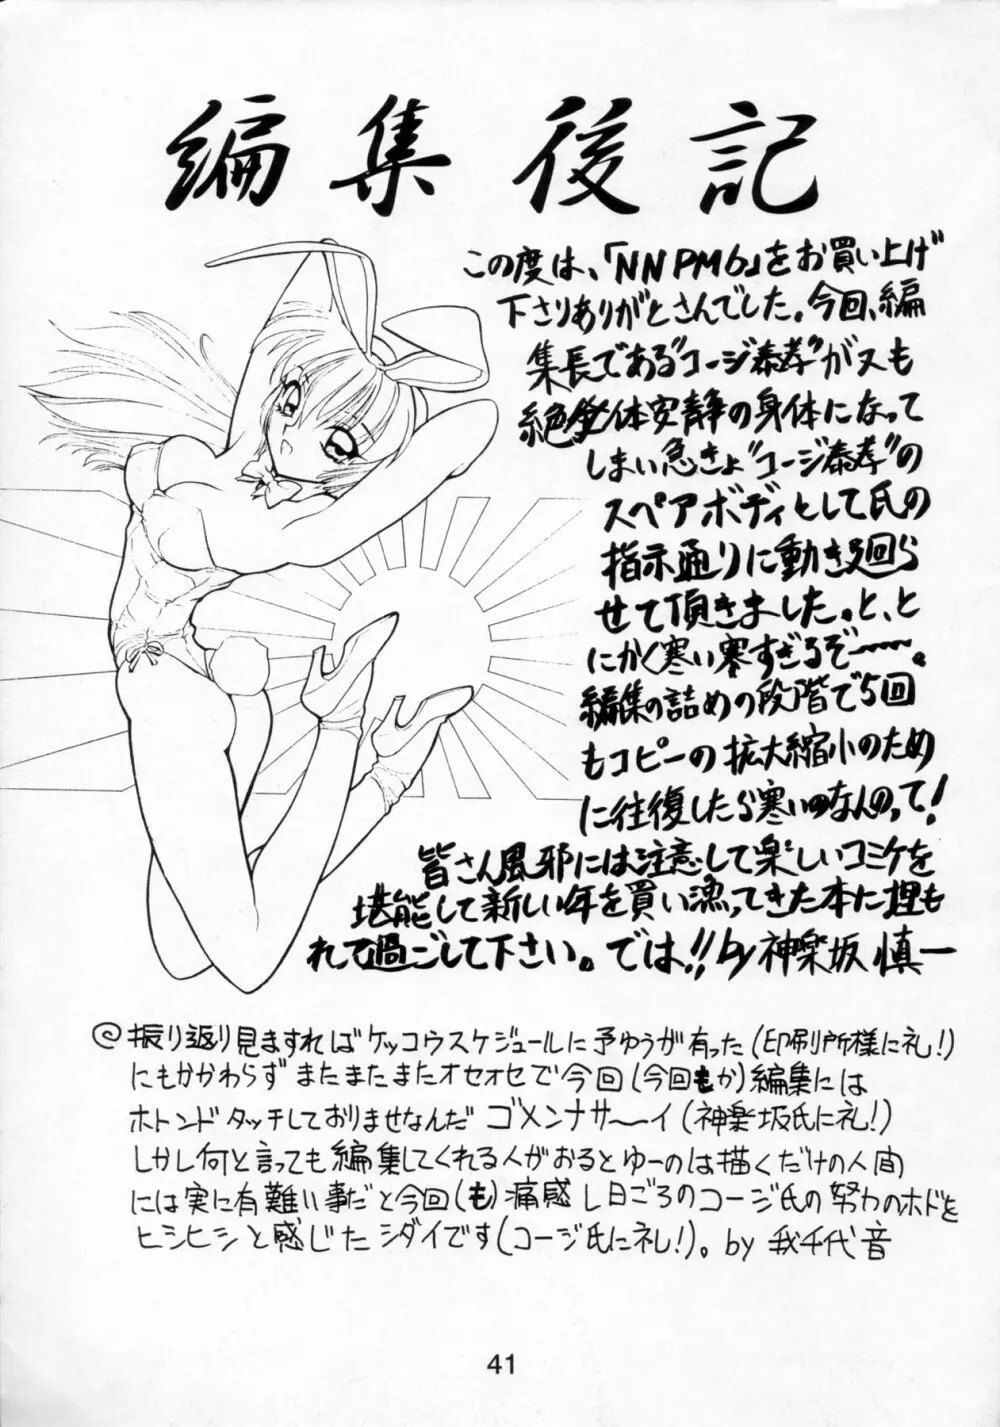 編集後記
この度は、「NNPM6」をお買い上げ
下さりありがとさんでした。今回、編
集長である"コージ泰孝"が又も
絶対体安静の身体になって
しまい急きょ"コージ泰孝"の
スペアボディとして氏の
指示通りに動き廻ら
せて頂きました。と、と
にかく寒い寒すぎるぞ〜〜。
編集の詰めの段階で5回
もコピーの拡大縮小のため
に往復したら寒いのなんのって!
皆さん風邪には注意して楽しいコミケを
堪能して新しい年を買い漁ってきた本に埋も
れて過ごして下さい。では!! by 神楽坂 慎一
◎振り返り見ますればケッコウスケジュールに予ゆうが有った(印刷所様に礼!)
にもかかわらずまたまたまたオセオセで今回(今回もか)編集には
ホトンドタッチしておりませなんだ ゴメンナサ〜イ(神楽坂氏に礼!)
しかし何と言っても編集してくれる人がおるとゆーのは描くだけの人間
には実に有難い事だと今回(も)痛感し日ごろのコージ氏の努力のホドを
ヒシヒシと感じたシダイです(コージ氏に礼!)。by 我千代音
41